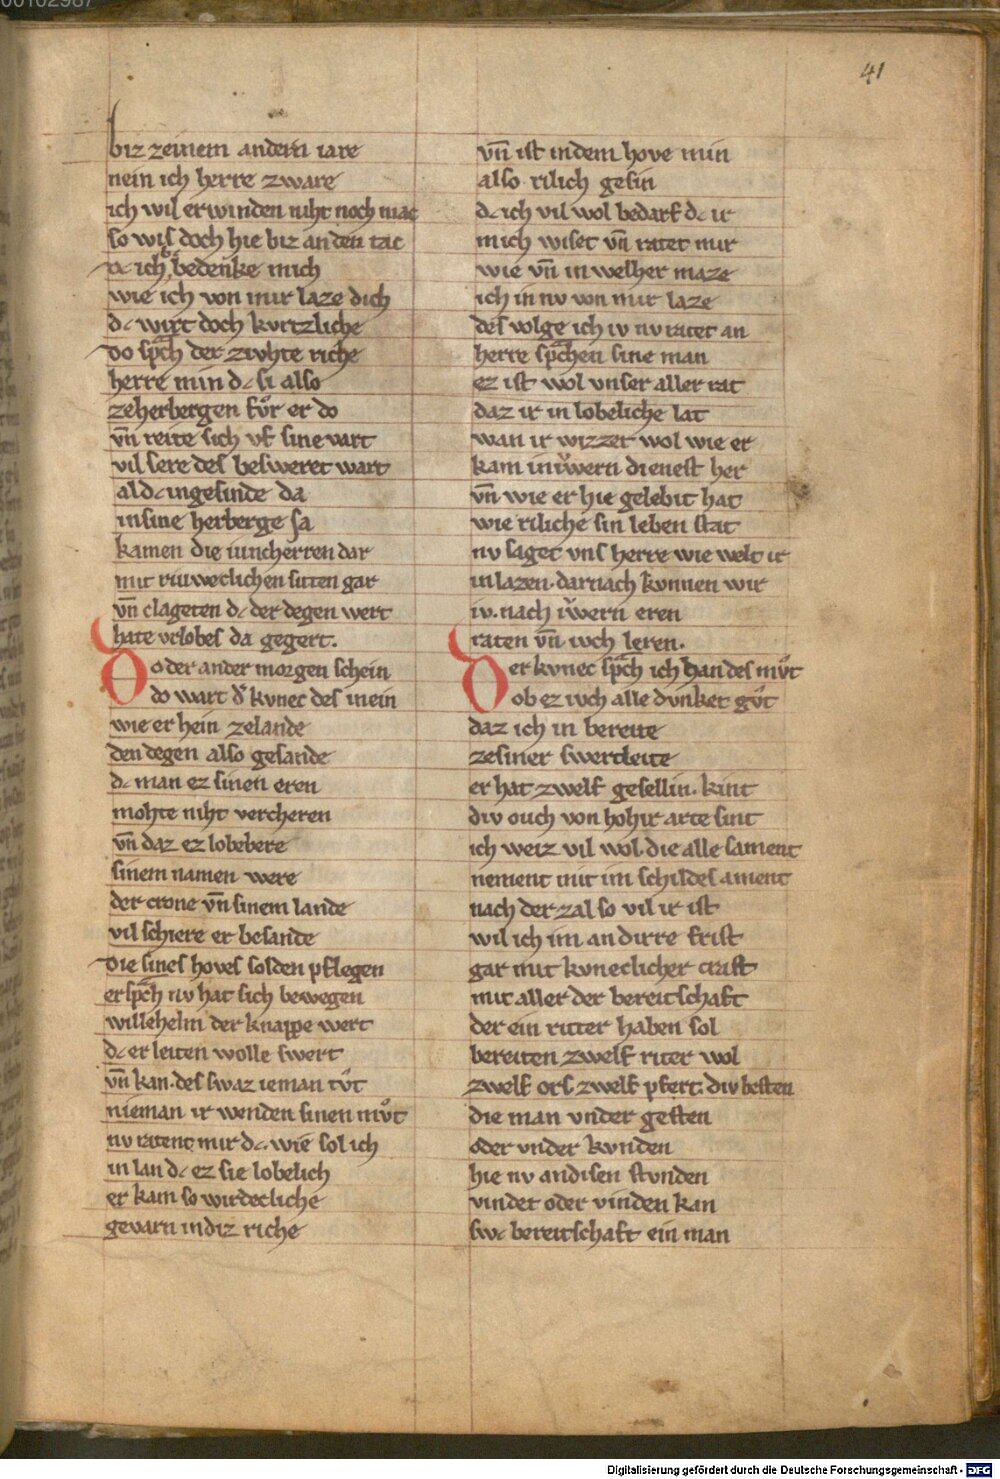 41
biz zeinem andern iare
nein ich herre zware
ich wil erwinden niht noch mac
so wis doch hie biz an den tac
dc ich bedenke mich
wie ich von mir laze dich
dc wirt doch kvrtzliche
do sp̄ch der zvhte riche
herre min dc si also
zeherbergen fv̊r er do
vn̄ reite sich vf sine vart
vil sere des besweret wart
al dc ingesinde da
in sine herberge sa
kamen die iuncherren dar
mit riuweclichen sitten gar
vn̄ clageten dc der degen wert
hate vrlobes da gegert.
Do der ander morgen schein
do wart d̓ kvnec des inein
wie er hein zelande
den degen also gesande
dc man ez sinen eren
mohte niht vercheren
vn̄ daz ez lobebere
sinem namen were
der crone vn̄ sinem lande
vil schiere er besande
die sines hoves solden pflegen
er sp̄ch nv hat sich bewegen
willehelm der knappe wert
dc er leiten wolle swert
vn̄ kan.des swaz ieman tv̊t
nieman ir wenden sinen mv̊t
nv ratent mir dc wie sol ich
in lan dc ez sie lobelich
er kam so wirdecliche
gevarn in diz riche
vn̄ ist in dem hove min
also rilich gesin
dc ich vil wol bedarf dc ir
mich wiset vn̄ ratet mir
wie vn̄ in welher maze
ich in nv von mir laze
des volge ich iv nv ratet an
herre sp̄chen sine man
ez ist wol vnser aller rat
daz ir in lobeliche lat
wan ir wizzet wol wie er
kam in iv̓wern dienest her
vn̄ wie er hie gelebit hat
wie riliche sin leben stat
nv saget vns herre wie welt ir
in lazen.darnach kvnnen wir
iv.nach iv̓wern eren
raten vn̄ ivch leren.
Der kvnec sp̄ch ich han des mv̊t
ob ez ivch alle dvnket gv̊t
daz ich in bereite
zesiner swertleite
er hat zwelf gesellin.kint
div ouch von hohir arte sint
ich weiz vil wol.die alle sament
nement mit im schildes ament
nach der zal so vil ir ist
wil ich im an dirre frist
gar mit kvneclicher craft
mit aller der bereitschaft
der ein ritter haben sol
bereiten zwelf riter wol
zwelf ors.zwelf pfert.div besten
die man vnder gesten
oder vnder kvnden
hie nv an disen stvnden
vindet oder vinden kan
swc bereitschaft ein man
Digitalisierung gefördert durch die Deutsche Forschungsgemeinschaft - DFG